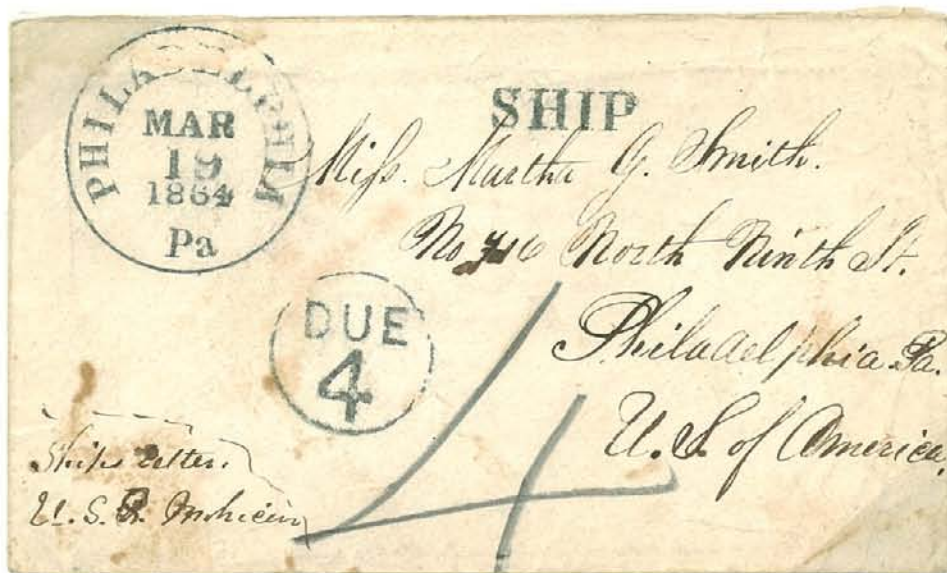 PHILADELPHIA
MAR
19
1864
Pa
SHIP
Miss. Martha G. Smith.
No North Ninth St.
Philadelphia Pa.
U. S. of America
DUE
4
4
Ship's Letter.
U. S. S. Mohican